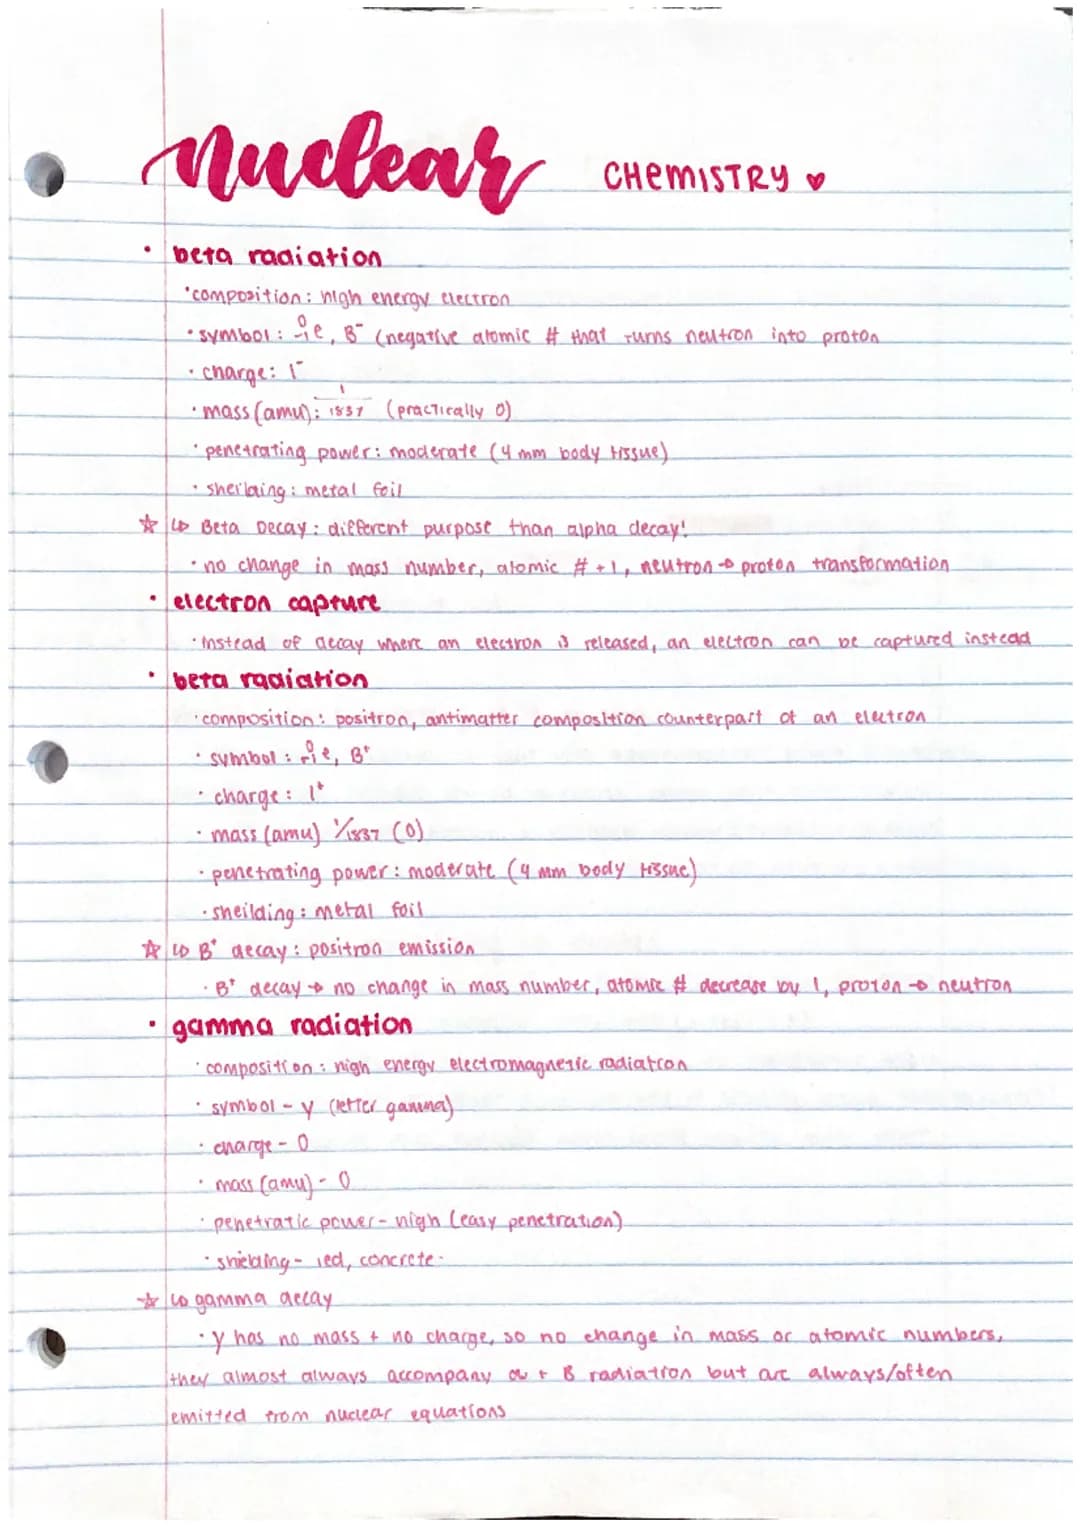 nuclear CHEMISTRY ♥
• beta radiation
•composition: high energy electron
•symbol: ⁰₋₁e, B⁻ (negative atomic # that turns neutron into proton
• charge: 1⁻
•mass (amu): 1/1837 (practically 0)
• penetrating power: moderate (4 mm body tissue)
• sheilding: metal foil
☆ ↳ Beta Decay: different purpose than alpha decay!
• no change in mass number, atomic # +1, neutron → proton transformation
• electron capture
•Instead of decay where an electron is released, an electron can be captured instead
• beta radiation
•composition: positron, antimatter composition counterpart of an electron
• symbol: ⁰₊₁e, B⁺
• charge: 1⁺
• mass (amu) 1/1837 (0)
• penetrating power: moderate (4 mm body tissue)
•sheilding: metal foil
☆ ↳ B⁺ decay: positron emission
• B⁺ decay → no change in mass number, atomic # decrease by 1, proton → neutron
• gamma radiation
•composition: high energy electromagnetic radiation
• symbol - γ (letter gamma)
• charge - 0
• mass (amu) - 0
• penetratic power - high (easy penetration)
• shielding - led, concrete
☆ ↳ gamma decay
• γ has no mass + no charge, so no change in mass or atomic numbers,
they almost always accompany α + B radiation but are always/often
emitted from nuclear equations